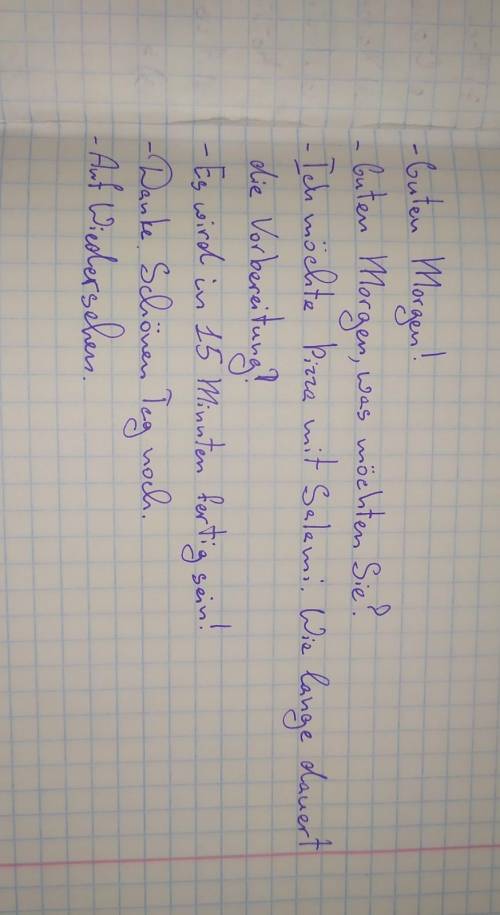 - Guten Morgen!
- Guten Morgen, was möchten Sie?
- Ich möchte Pizza mit Salami. Wie lange dauert
die Vorbereitung?
- Es wird in 15 Minuten fertig sein!
- Danke. Schönen Tag noch.
- Auf Wiedersehen.